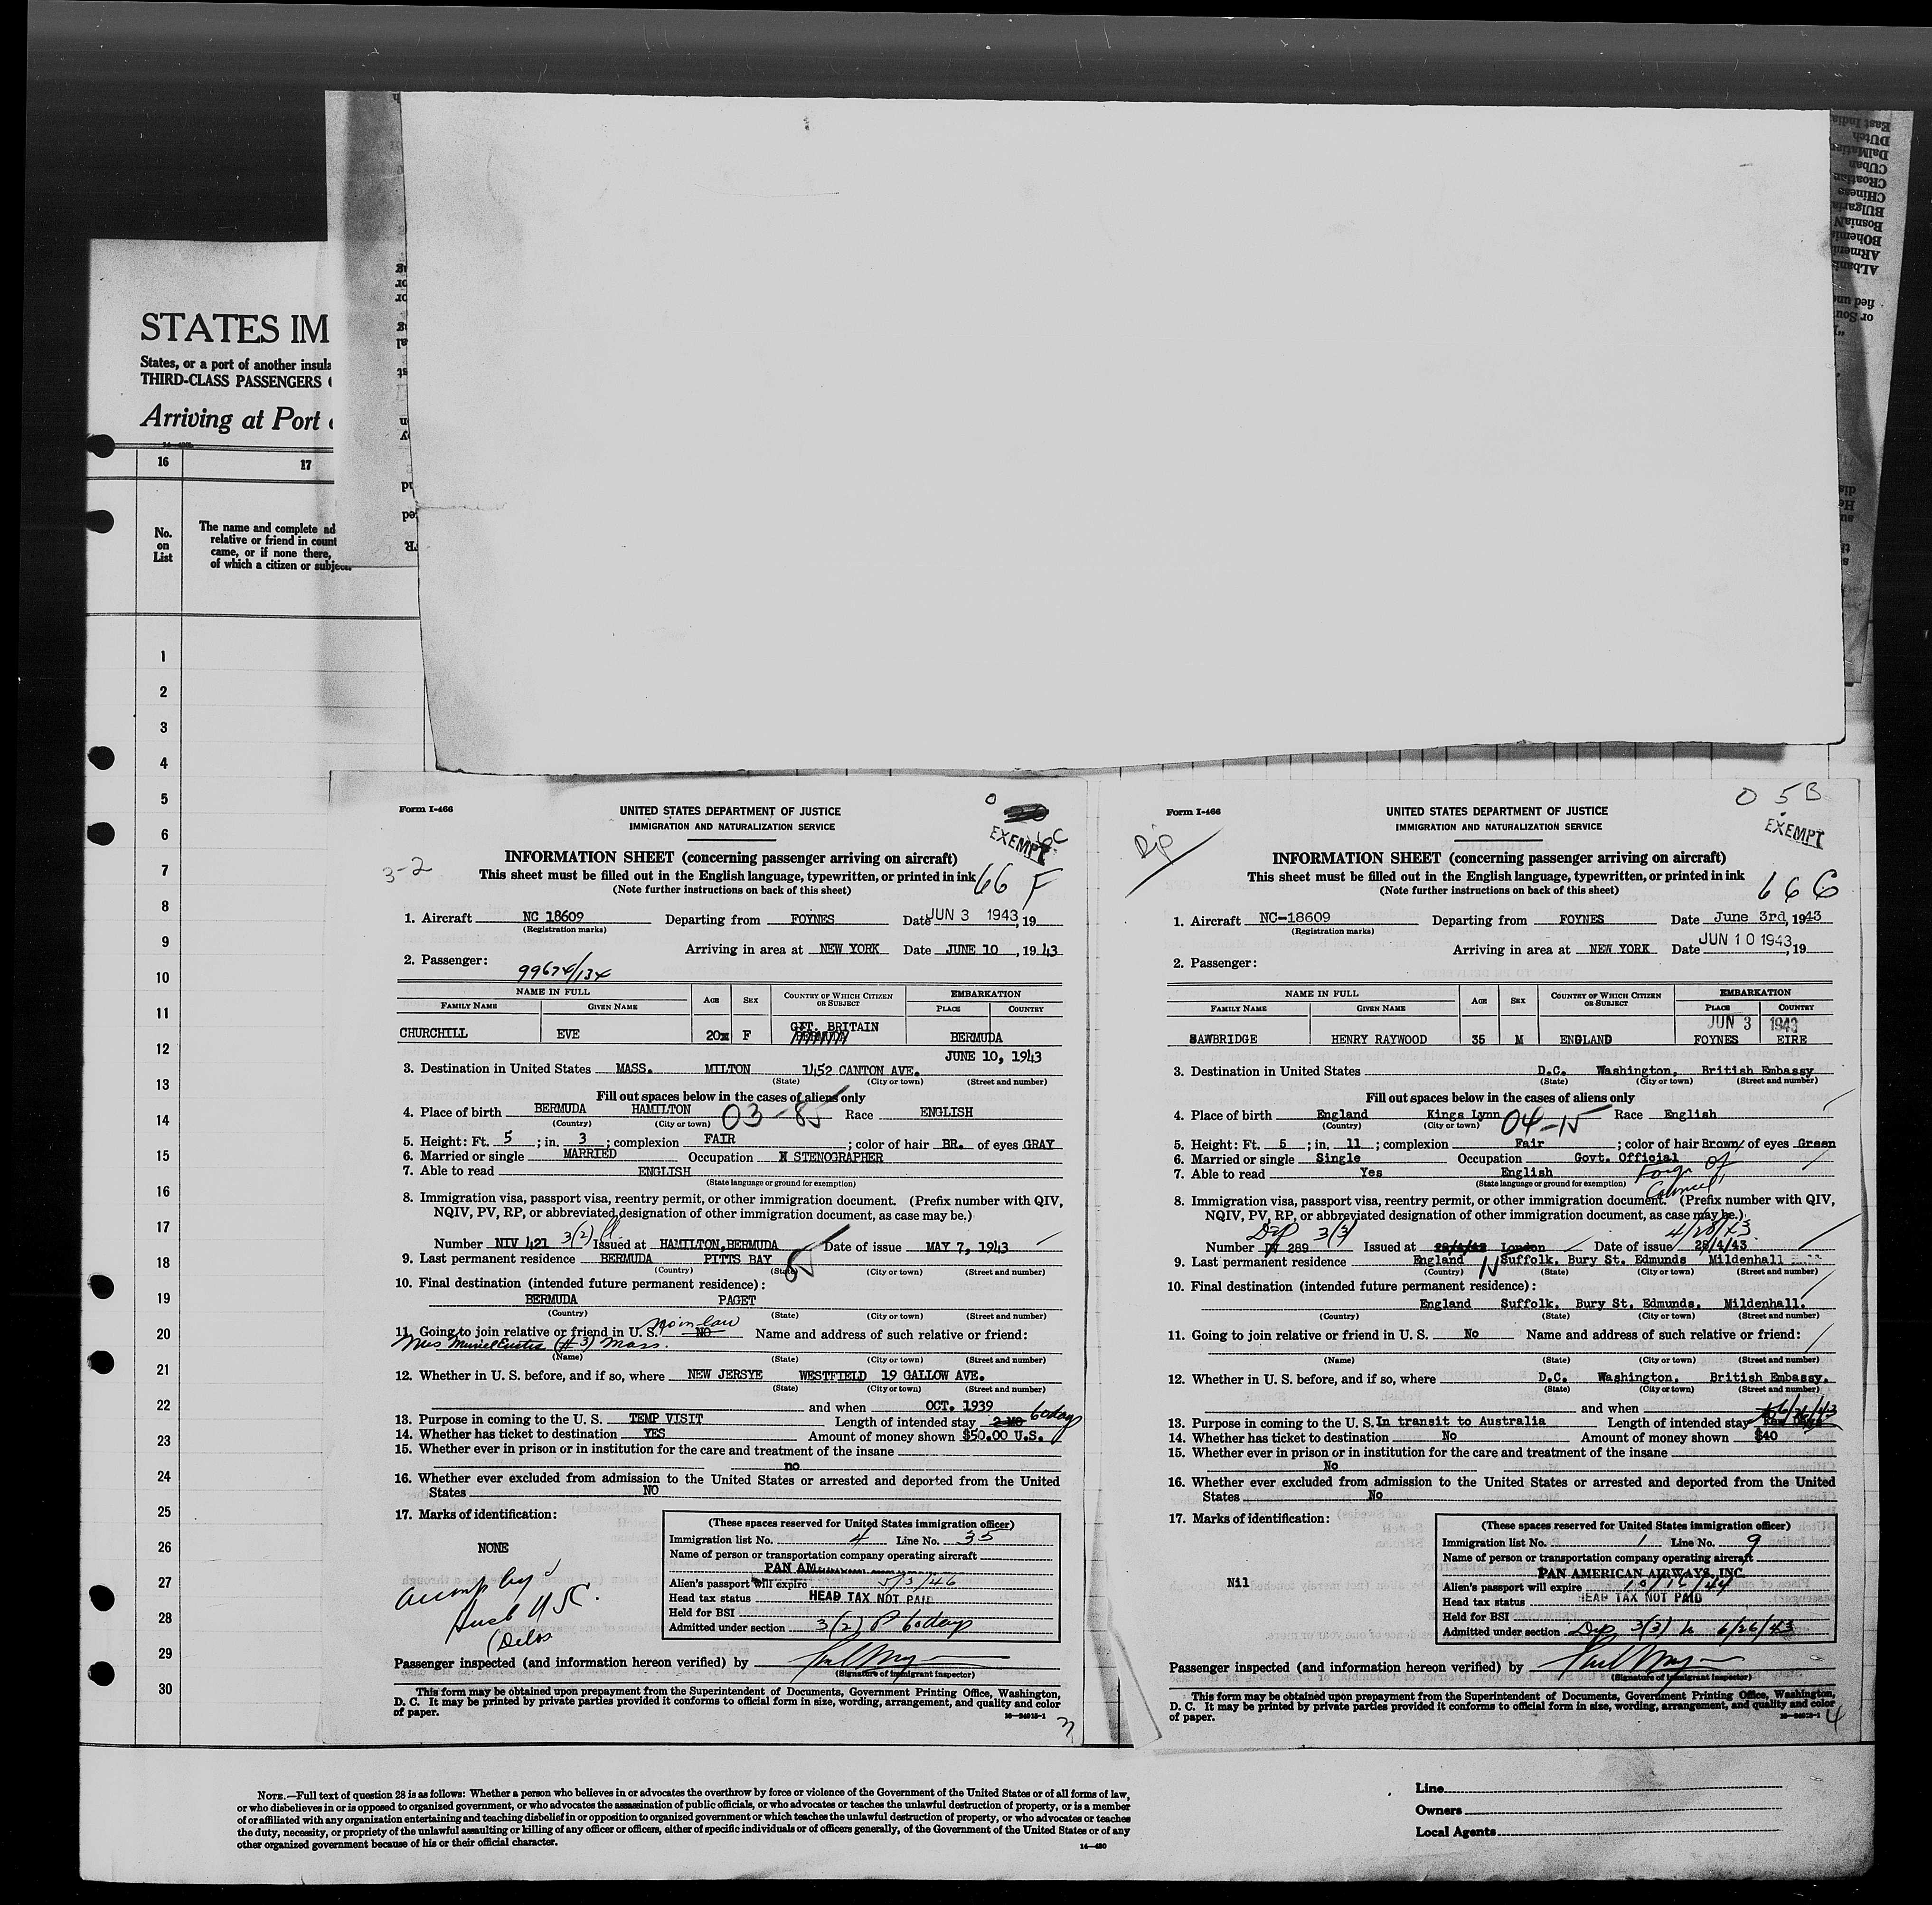 STATES IM
States, or a port of another insula
THIRD-CLASS PASSENGERS
Arriving at Port
16 17
No.
on
List
The name and complete ad
relative or friend in count
came, or if none there,
of which a citizen or subject
1
2
3
4
5
6
7
8
9
10
11
12
13
14
15
16
17
18
19
20
21
22
23
24
25
26
27
28
29
30
Form I-466
UNITED STATES DEPARTMENT OF JUSTICE
IMMIGRATION AND NATURALIZATION SERVICE
EXEMPT
3-2
INFORMATION SHEET (concerning passenger arriving on aircraft)
This sheet must be filled out in the English language, typewritten, or printed in ink
(Note further instructions on back of this sheet)
66 F
1. Aircraft NC 18609 Departing from FOYNES Date JUN 3 1943, 19
(Registration marks)
Arriving in area at NEW YORK Date JUNE 10, 1943
2. Passenger:
NAME IN FULL AGE SEX COUNTRY OF WHICH CITIZEN OR SUBJECT EMBARKATION
FAMILY NAME GIVEN NAME PLACE COUNTRY
CHURCHILL EVE 20 F GFT. BRITAIN BERMUDA
JUNE 10, 1943
3. Destination in United States MASS. MILTON 1452 CANTON AVE.
(State) (City or town) (Street and number)
Fill out spaces below in the cases of aliens only
4. Place of birth BERMUDA HAMILTON 03-85 Race ENGLISH
(Country) (City or town)
5. Height: Ft. 5; in. 3; complexion FAIR; color of hair BR. of eyes GRAY
6. Married or single MARRIED Occupation STENOGRAPHER
7. Able to read ENGLISH
(State language or ground for exemption)
8. Immigration visa, passport visa, reentry permit, or other immigration document. (Prefix number with QIV,
NQIV, PV, RP, or abbreviated designation of other immigration document, as case may be.)
Number NIV 421 3(2) Issued at HAMILTON, BERMUDA Date of issue MAY 7, 1943
9. Last permanent residence BERMUDA PITTS BAY 85
(Country) (State) (City or town) (Street and number)
10. Final destination (intended future permanent residence):
BERMUDA PAGET
(Country) (State) (City or town) (Street and number)
11. Going to join relative or friend in U. S. NO Name and address of such relative or friend:
Mrs Muriel Curtis (#3) Mass.
(Name) (State) (City or town) (Street and number)
12. Whether in U. S. before, and if so, where NEW JERSYE WESTFIELD 19 GALLOW AVE.
(State) (City or town) (Street and number)
and when OCT. 1939
13. Purpose in coming to the U. S. TEMP VISIT Length of intended stay 2 MO 60 days
14. Whether has ticket to destination YES Amount of money shown $50.00 U.S.
15. Whether ever in prison or in institution for the care and treatment of the insane
no
16. Whether ever excluded from admission to the United States or arrested and deported from the United
States NO
17. Marks of identification:
NONE
(These spaces reserved for United States immigration officer)
Immigration list No. 4 Line No. 35
Name of person or transportation company operating aircraft
PAN AM
Alien's passport will expire 5/3/46
Head tax status HEAD TAX NOT PAID
Held for BSI
Admitted under section 3(2) P 60 days
Passenger inspected (and information hereon verified) by
(Signature of immigrant inspector)
This form may be obtained upon prepayment from the Superintendent of Documents, Government Printing Office, Washington,
D. C. It may be printed by private parties provided it conforms to official form in size, wording, arrangement, and quality and color
of paper.
Form I-466
UNITED STATES DEPARTMENT OF JUSTICE
IMMIGRATION AND NATURALIZATION SERVICE
O 5B
EXEMPT
Dip
INFORMATION SHEET (concerning passenger arriving on aircraft)
This sheet must be filled out in the English language, typewritten, or printed in ink
(Note further instructions on back of this sheet)
1. Aircraft NC-18609 Departing from FOYNES Date June 3rd, 1943
(Registration marks)
Arriving in area at NEW YORK Date JUN 10 1943, 19
2. Passenger:
NAME IN FULL AGE SEX COUNTRY OF WHICH CITIZEN OR SUBJECT EMBARKATION
FAMILY NAME GIVEN NAME PLACE COUNTRY
JUN 3 1943
SAWBRIDGE HENRY RAYWOOD 35 M ENGLAND FOYNES EIRE
3. Destination in United States D.C. Washington, British Embassy
(State) (City or town) (Street and number)
Fill out spaces below in the cases of aliens only
4. Place of birth England Kings Lynn 04-15 Race English
(Country) (City or town)
5. Height: Ft. 5; in. 11; complexion Fair; color of hair Brown of eyes Green
6. Married or single Single Occupation Govt. Official
7. Able to read Yes English
(State language or ground for exemption)
8. Immigration visa, passport visa, reentry permit, or other immigration document. (Prefix number with QIV,
NQIV, PV, RP, or abbreviated designation of other immigration document, as case may be.)
Dip 3/3) 4/28/43
Number 289 Issued at 28/4/43 London Date of issue 28/4/43
9. Last permanent residence England Suffolk. Bury St. Edmunds Mildenhall
(Country) (State) (City or town) (Street and number)
10. Final destination (intended future permanent residence):
England Suffolk. Bury St. Edmunds. Mildenhall.
(Country) (State) (City or town) (Street and number)
11. Going to join relative or friend in U. S. No Name and address of such relative or friend:
(Name) (State) (City or town) (Street and number)
12. Whether in U. S. before, and if so, where D.C. Washington. British Embassy.
(State) (City or town) (Street and number)
and when
13. Purpose in coming to the U. S. In transit to Australia Length of intended stay
14. Whether has ticket to destination No Amount of money shown $40
15. Whether ever in prison or in institution for the care and treatment of the insane
No
16. Whether ever excluded from admission to the United States or arrested and deported from the United
States No
17. Marks of identification:
Nil
(These spaces reserved for United States immigration officer)
Immigration list No. 1 Line No. 9
Name of person or transportation company operating aircraft
PAN AMERICAN AIRWAYS, INC
Alien's passport will expire 10/12/44
Head tax status HEAD TAX NOT PAID
Held for BSI
Admitted under section Dip 3(3) to 6/26/43
Passenger inspected (and information hereon verified) by
(Signature of immigrant inspector)
This form may be obtained upon prepayment from the Superintendent of Documents, Government Printing Office, Washington,
D. C. It may be printed by private parties provided it conforms to official form in size, wording, arrangement, and quality and color
of paper.
4
NOTE.—Full text of question 28 is as follows: Whether a person who believes in or advocates the overthrow by force or violence of the Government of the United States or of all forms of law,
or who disbelieves in or is opposed to organized government, or who advocates the assassination of public officials, or who advocates or teaches the unlawful destruction of property, or is a member
of or affiliated with any organization entertaining and teaching disbelief in or opposition to organized government or which teaches the unlawful destruction of property, or who advocates or teaches
the duty, necessity, or propriety of the unlawful assaulting or killing of any officer or officers, either of specific individuals or of officers generally, of the Government of the United States or of any
other organized government because of his or their official character.
14—430
Line
Owners
Local Agents